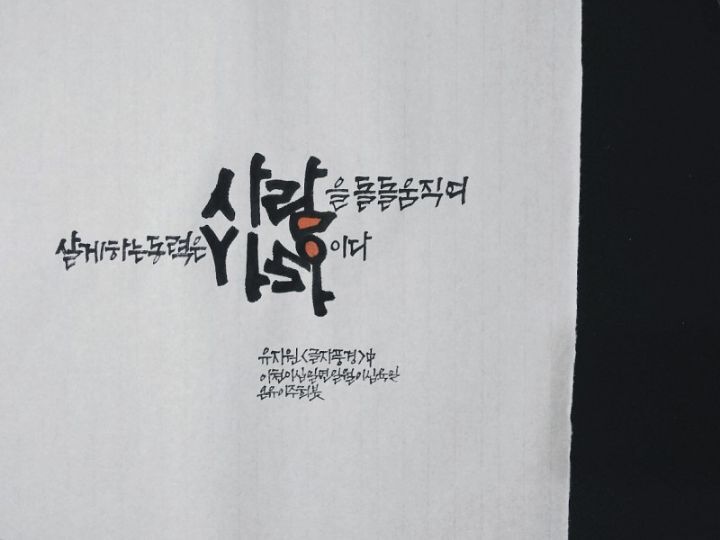 사람을들들움직여
살게하는동력은사랑이다
유지원<글자풍경>中
이천이십일년일월이십육일
온유이주희붓